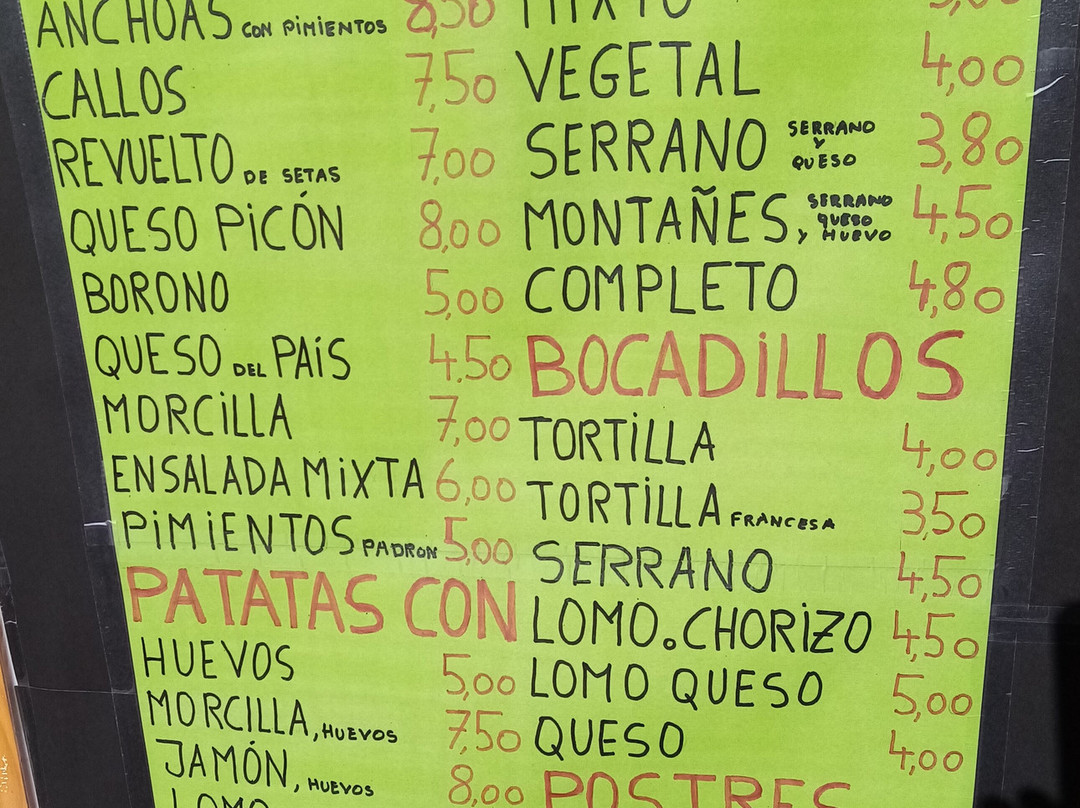 ANCHOAS CON PIMIENTOS 8,50
CALLOS 7,50
REVUELTO DE SETAS 7,00
QUESO PICÓN 8,00
BORONO 5,00
QUESO DEL PAÍS 4.50
MORCILLA 7,00
ENSALADA MIXTA 6,00
PIMIENTOS PADRON 5,00
PATATAS CON
HUEVOS 5,00
MORCILLA, HUEVOS 7,50
JAMÓN, HUEVOS 8,00
LOMO
MIXTO
VEGETAL 4,00
SERRANO SERRANO Y QUESO 3,80
MONTAÑES SERRANO QUESO Y HUEVO 4,50
COMPLETO 4,80
BOCADILLOS
TORTILLA 4,00
TORTILLA FRANCESA 3,50
SERRANO 4,50
LOMO.CHORIZO 4,50
LOMO QUESO 5,00
QUESO 4,00
POSTRES